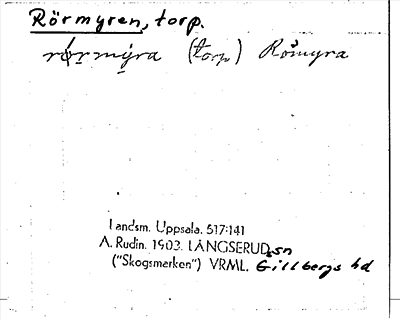 Rörmyren, torp.
rörmýra (torp) Römyra
Landsm. Uppsala. 517:141
A. Rudin. 1903. LÅNGSERUDS sn
("Skogsmarken") VRML. Gillbergs hd